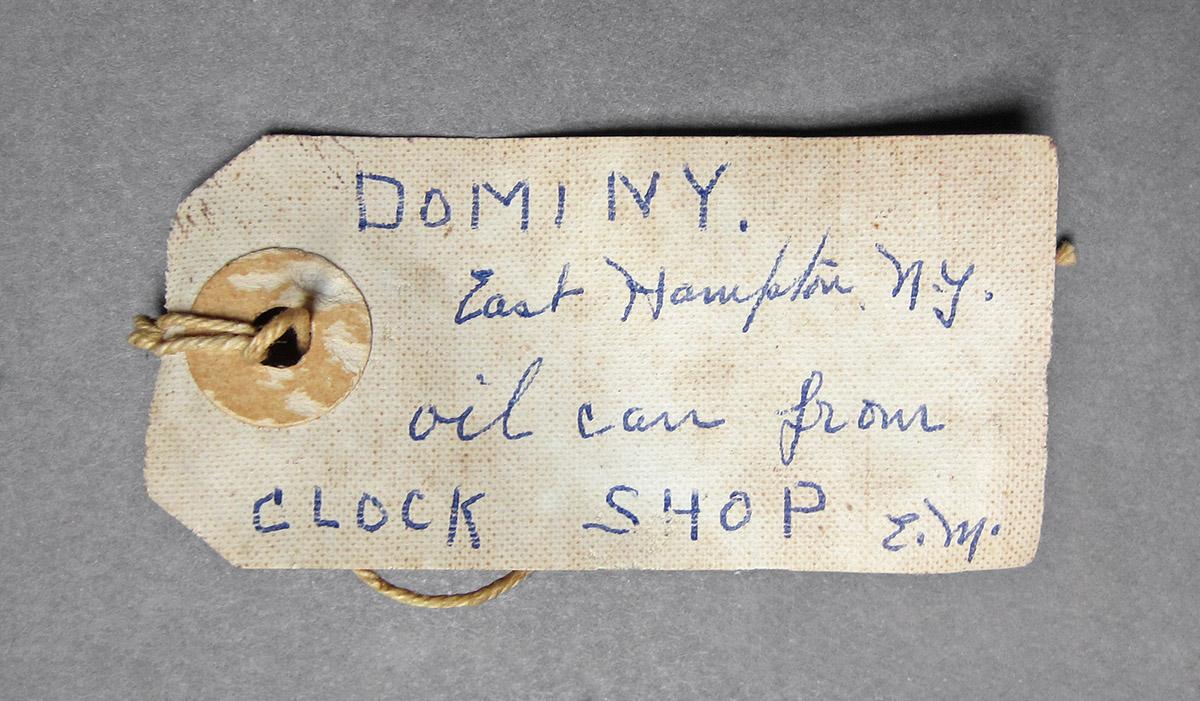 DOMINY.
East Hampton N.Y.
oil can from
CLOCK SHOP E.M.